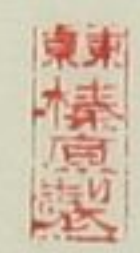 東京
榛原製